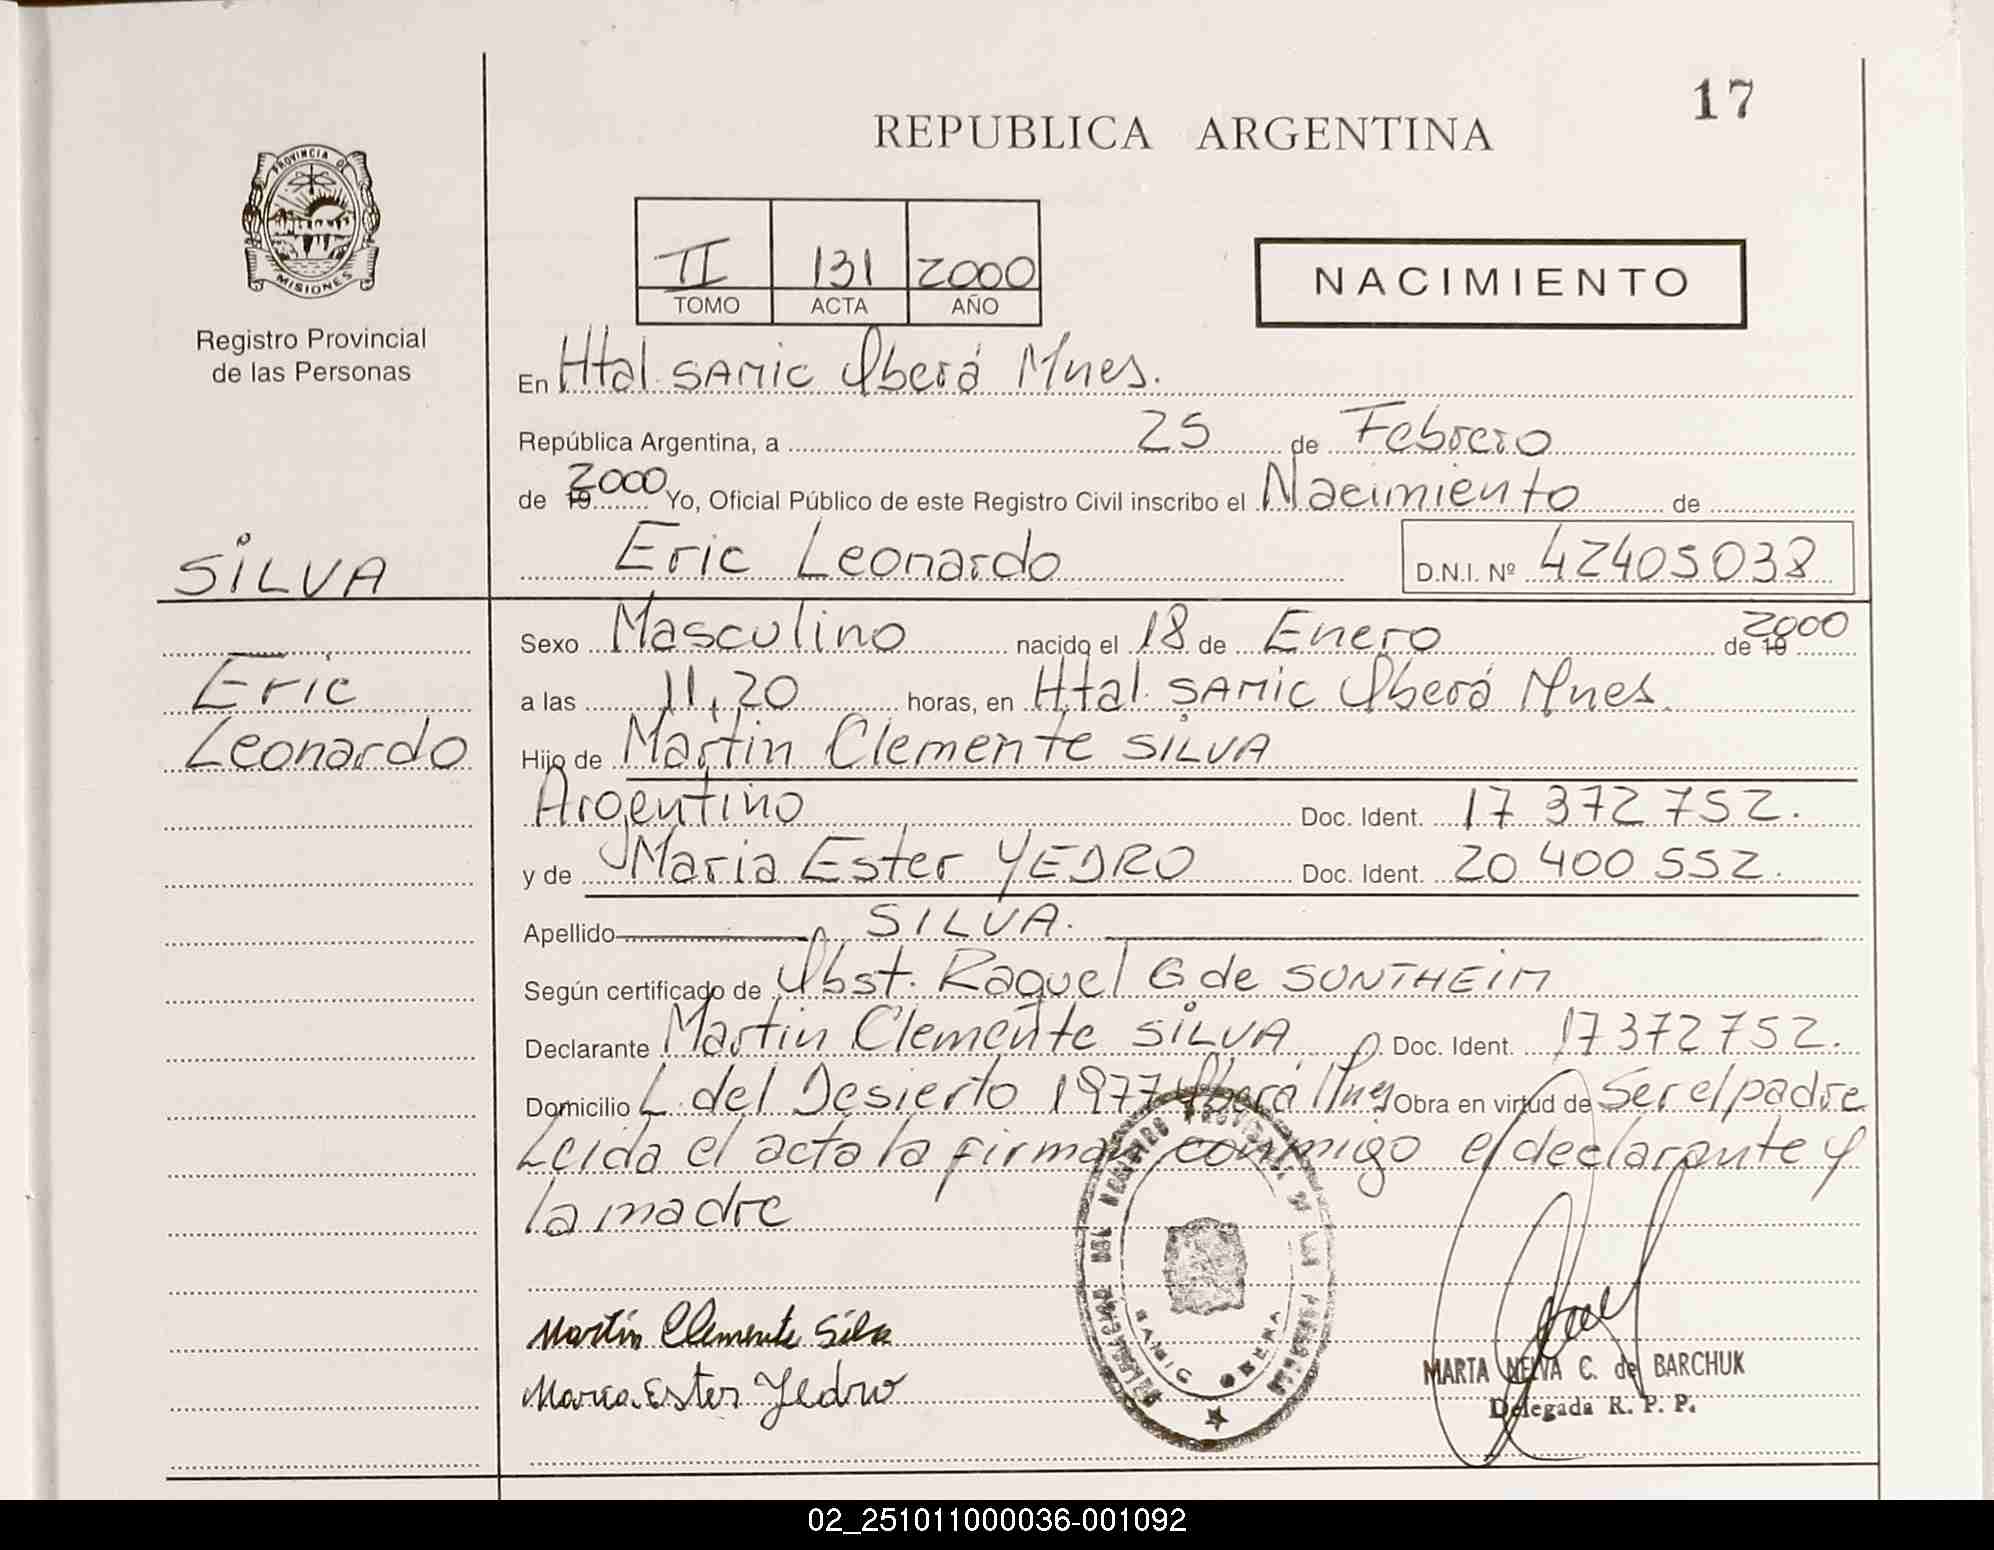 17
REPUBLICA ARGENTINA
PROVINCIA DE
MISIONES
Registro Provincial
de las Personas
II 131 2000
TOMO ACTA AÑO
NACIMIENTO
En Htal. SAMIC Oberá Mnes.
República Argentina, a 25 de Febrero
de 19 2000 Yo, Oficial Público de este Registro Civil inscribo el Nacimiento de
SILVA
Eric Leonardo D.N.I. Nº 42405038
Sexo Masculino nacido el 18 de Enero de 19 2000
Eric
a las 11,20 horas, en Htal. SAMIC Oberá Mnes.
Leonardo
Hijo de Martin Clemente SILVA
Argentino Doc. Ident. 17 372 752.
y de Maria Ester YEDRO Doc. Ident. 20 400 552.
Apellido SILVA.
Según certificado de Obst. Raquel G de SONTHEIM
Declarante Martin Clemente SILVA Doc. Ident. 17372752.
Domicilio L. del Desierto 1977 Oberá Mnes Obra en virtud de Ser el padre
Leida el acta la firman conmigo el declarante y
la madre
DELEGACION DEL REGISTRO PROVINCIAL DE LAS PERSONAS
SAMIC OBERA
Martin Clemente Silva
Maria Ester Yedro
MARTA NELVA C. de BARCHUK
Delegada R. P. P.
02_251011000036-001092